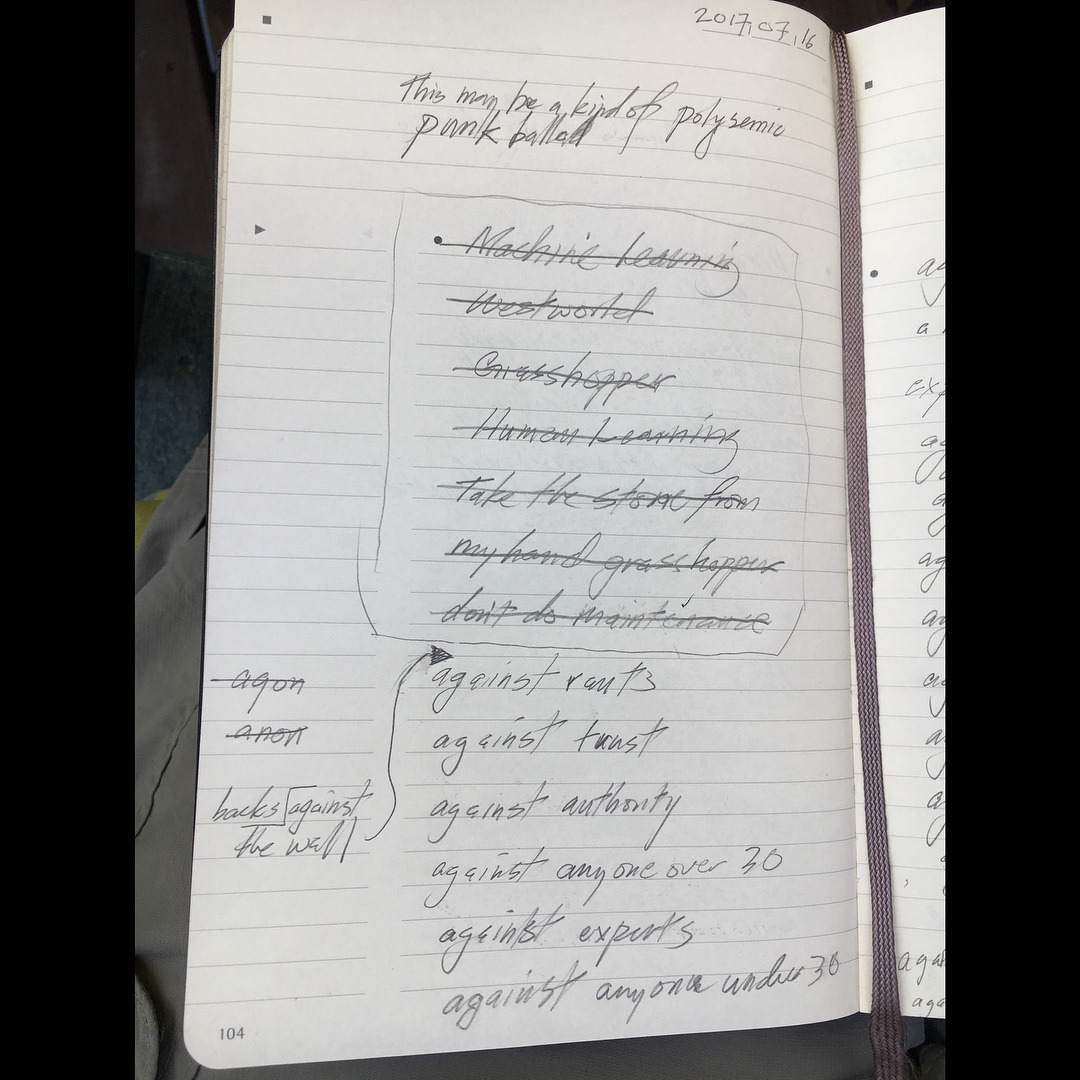 2017.07.16
This may be a kind of polysemic
punk ballad
Machine Learning
Westworld
Grasshopper
Human Learning
Take the stone from
my hand grasshopper
don't do maintenance
against rants
against trust
against authority
against anyone over 30
against experts
against anyone under 30
agon
anon
backs against
the wall
104
ag
a
exp
ag
ag
ag
ag
a
agai
aga